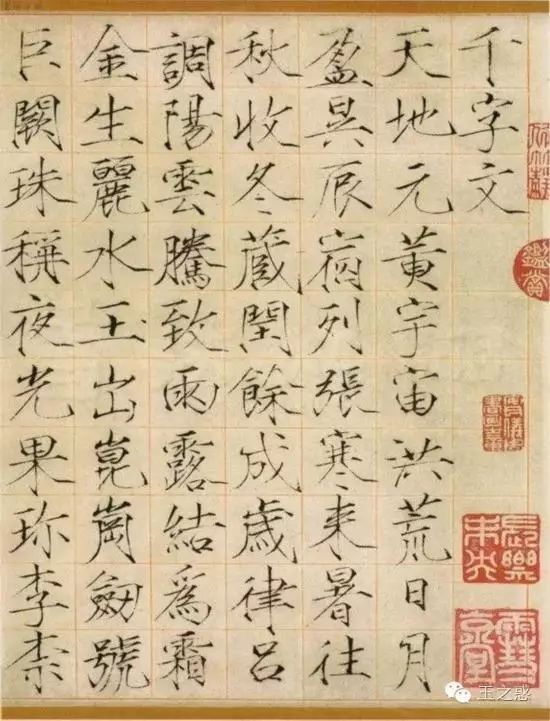 千字文
天地元黃宇宙洪荒日月
盈昃辰宿列張寒来暑往
秋收冬蔵閏餘成歲律呂
調陽雲騰致雨露結爲霜
金生麗水玉出崑崗劒號
巨闕珠稱夜光果珎李柰
鑑賞
王之惑